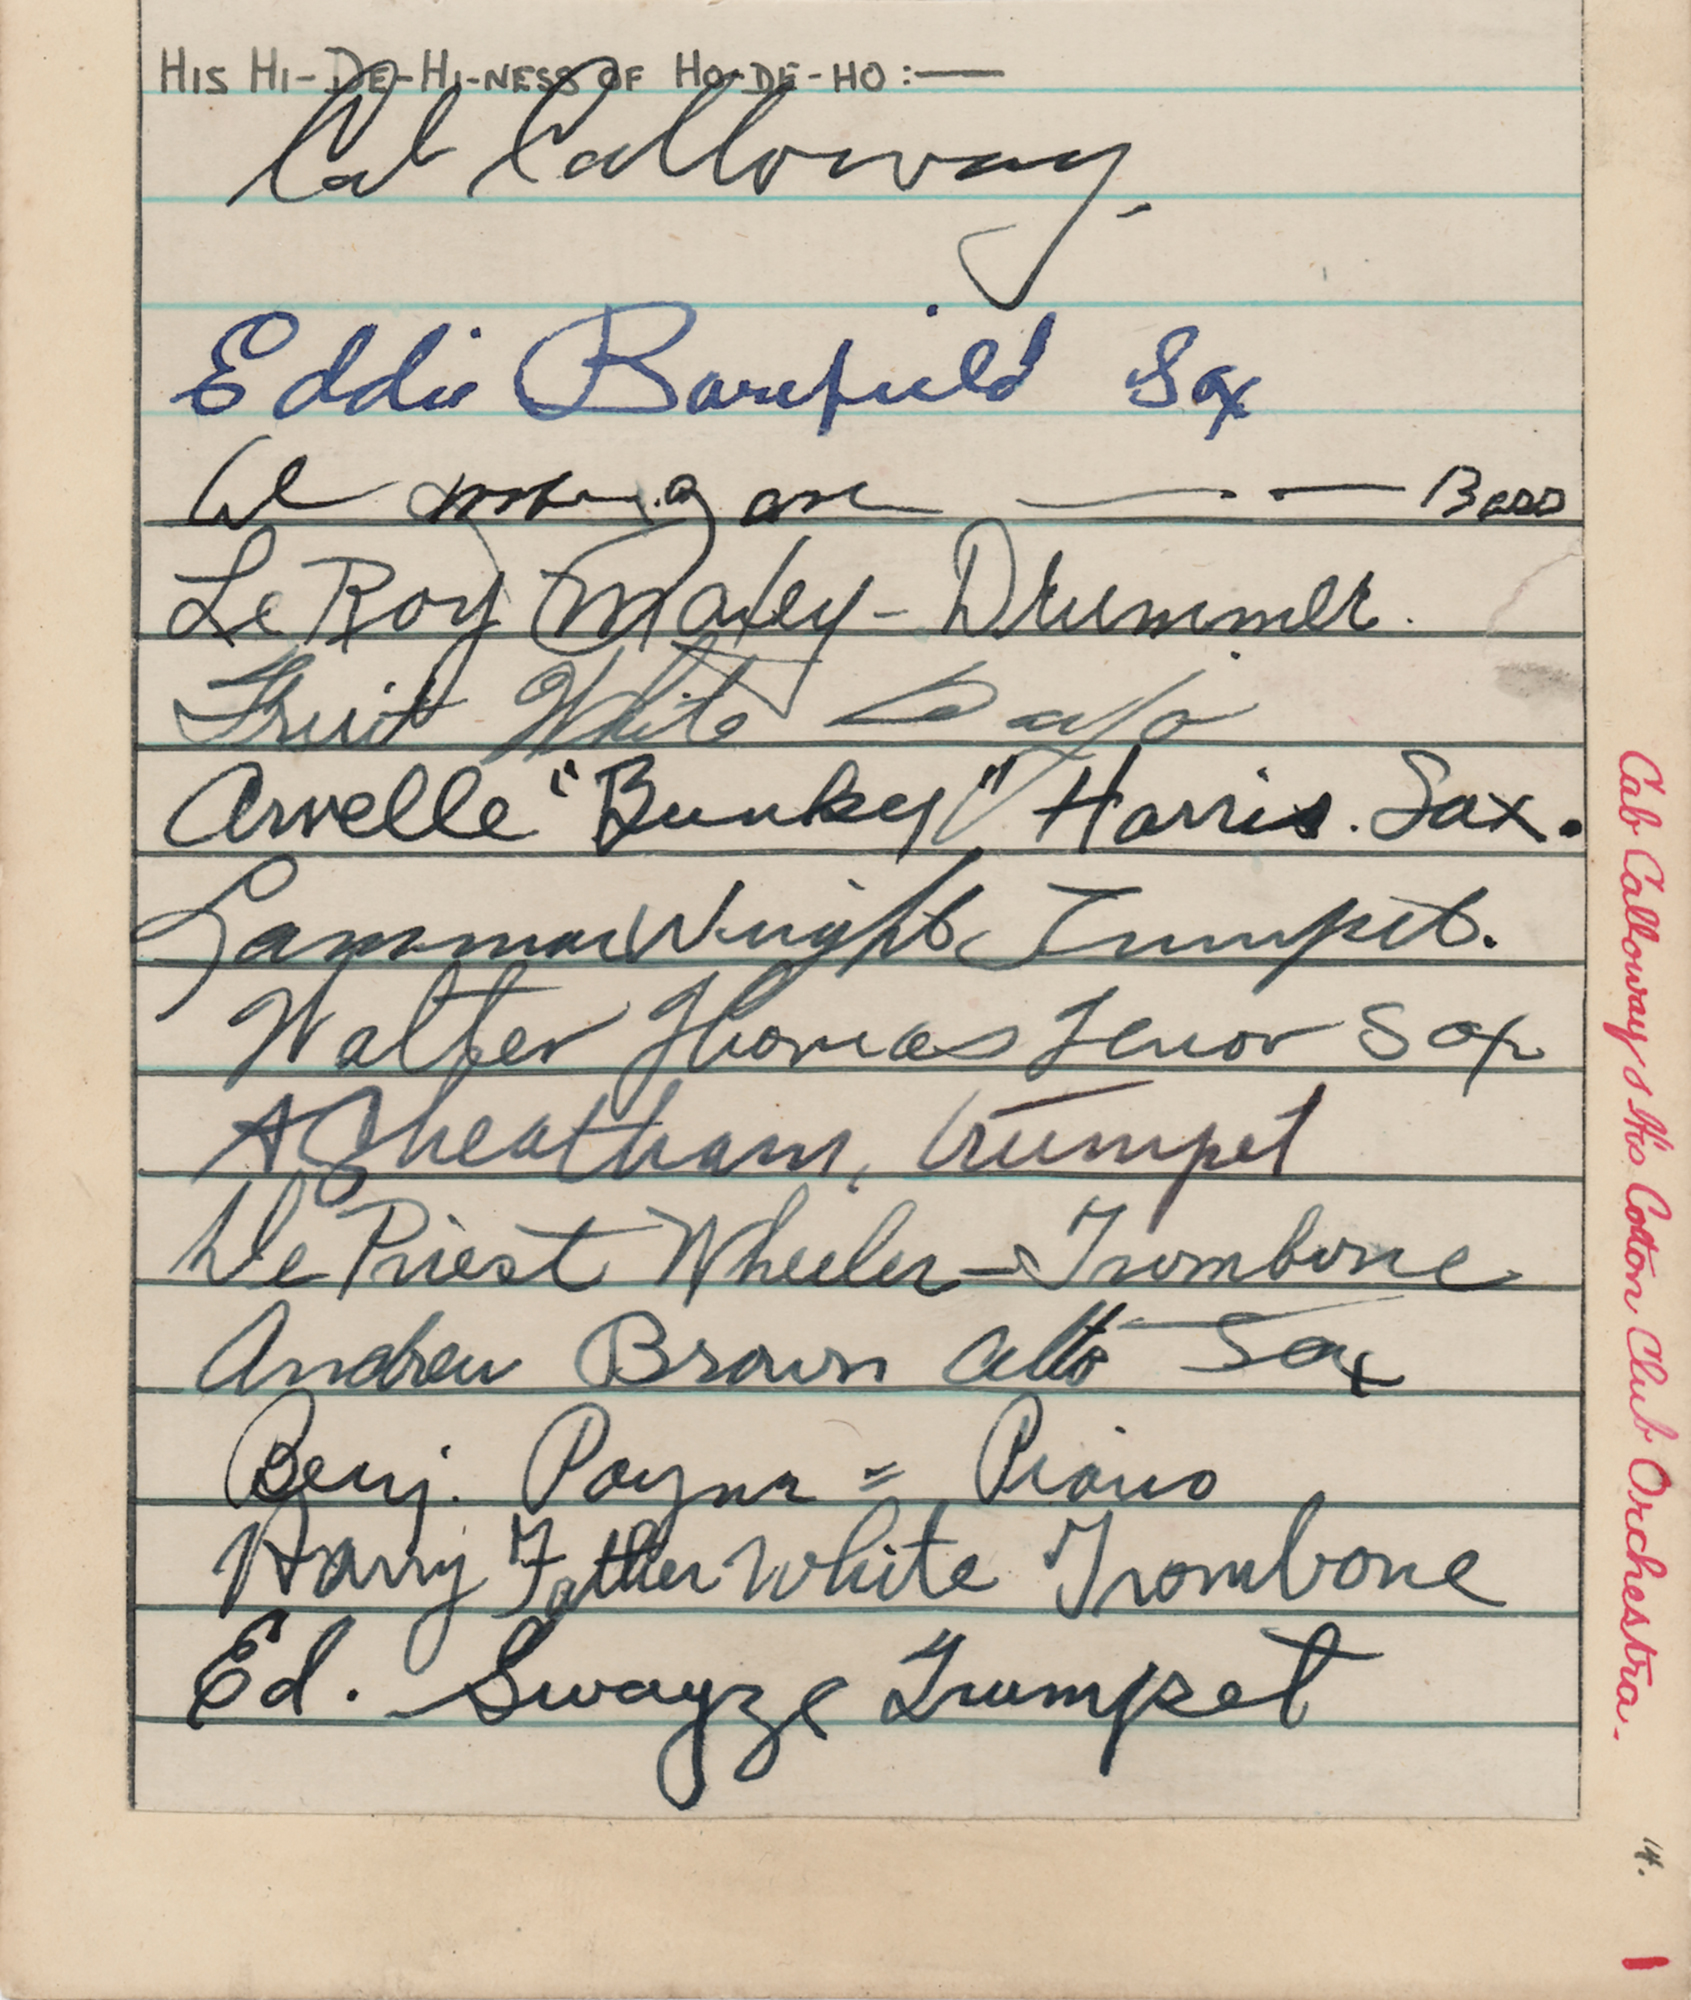 HIS HI-DE-HI-NESS OF HO-DE-HO:—
Cab Calloway.
Eddie Barefield Sax
Al Morgan — - — Bass
LeRoy Maxey - Drummer.
Fruit White Banjo
Arvelle "Bunkey" Harris. Sax.
Lammar Wright Trumpet.
Walter Thomas Tenor Sax
A Cheatham, trumpet
De Priest Wheeler - Trombone
Andrew Brown alto Sax
Benj. Payne = Piano
Harry Father White Trombone
Ed. Swayze Trumpet
Cab Calloway & His Cotton Club Orchestra.
14.